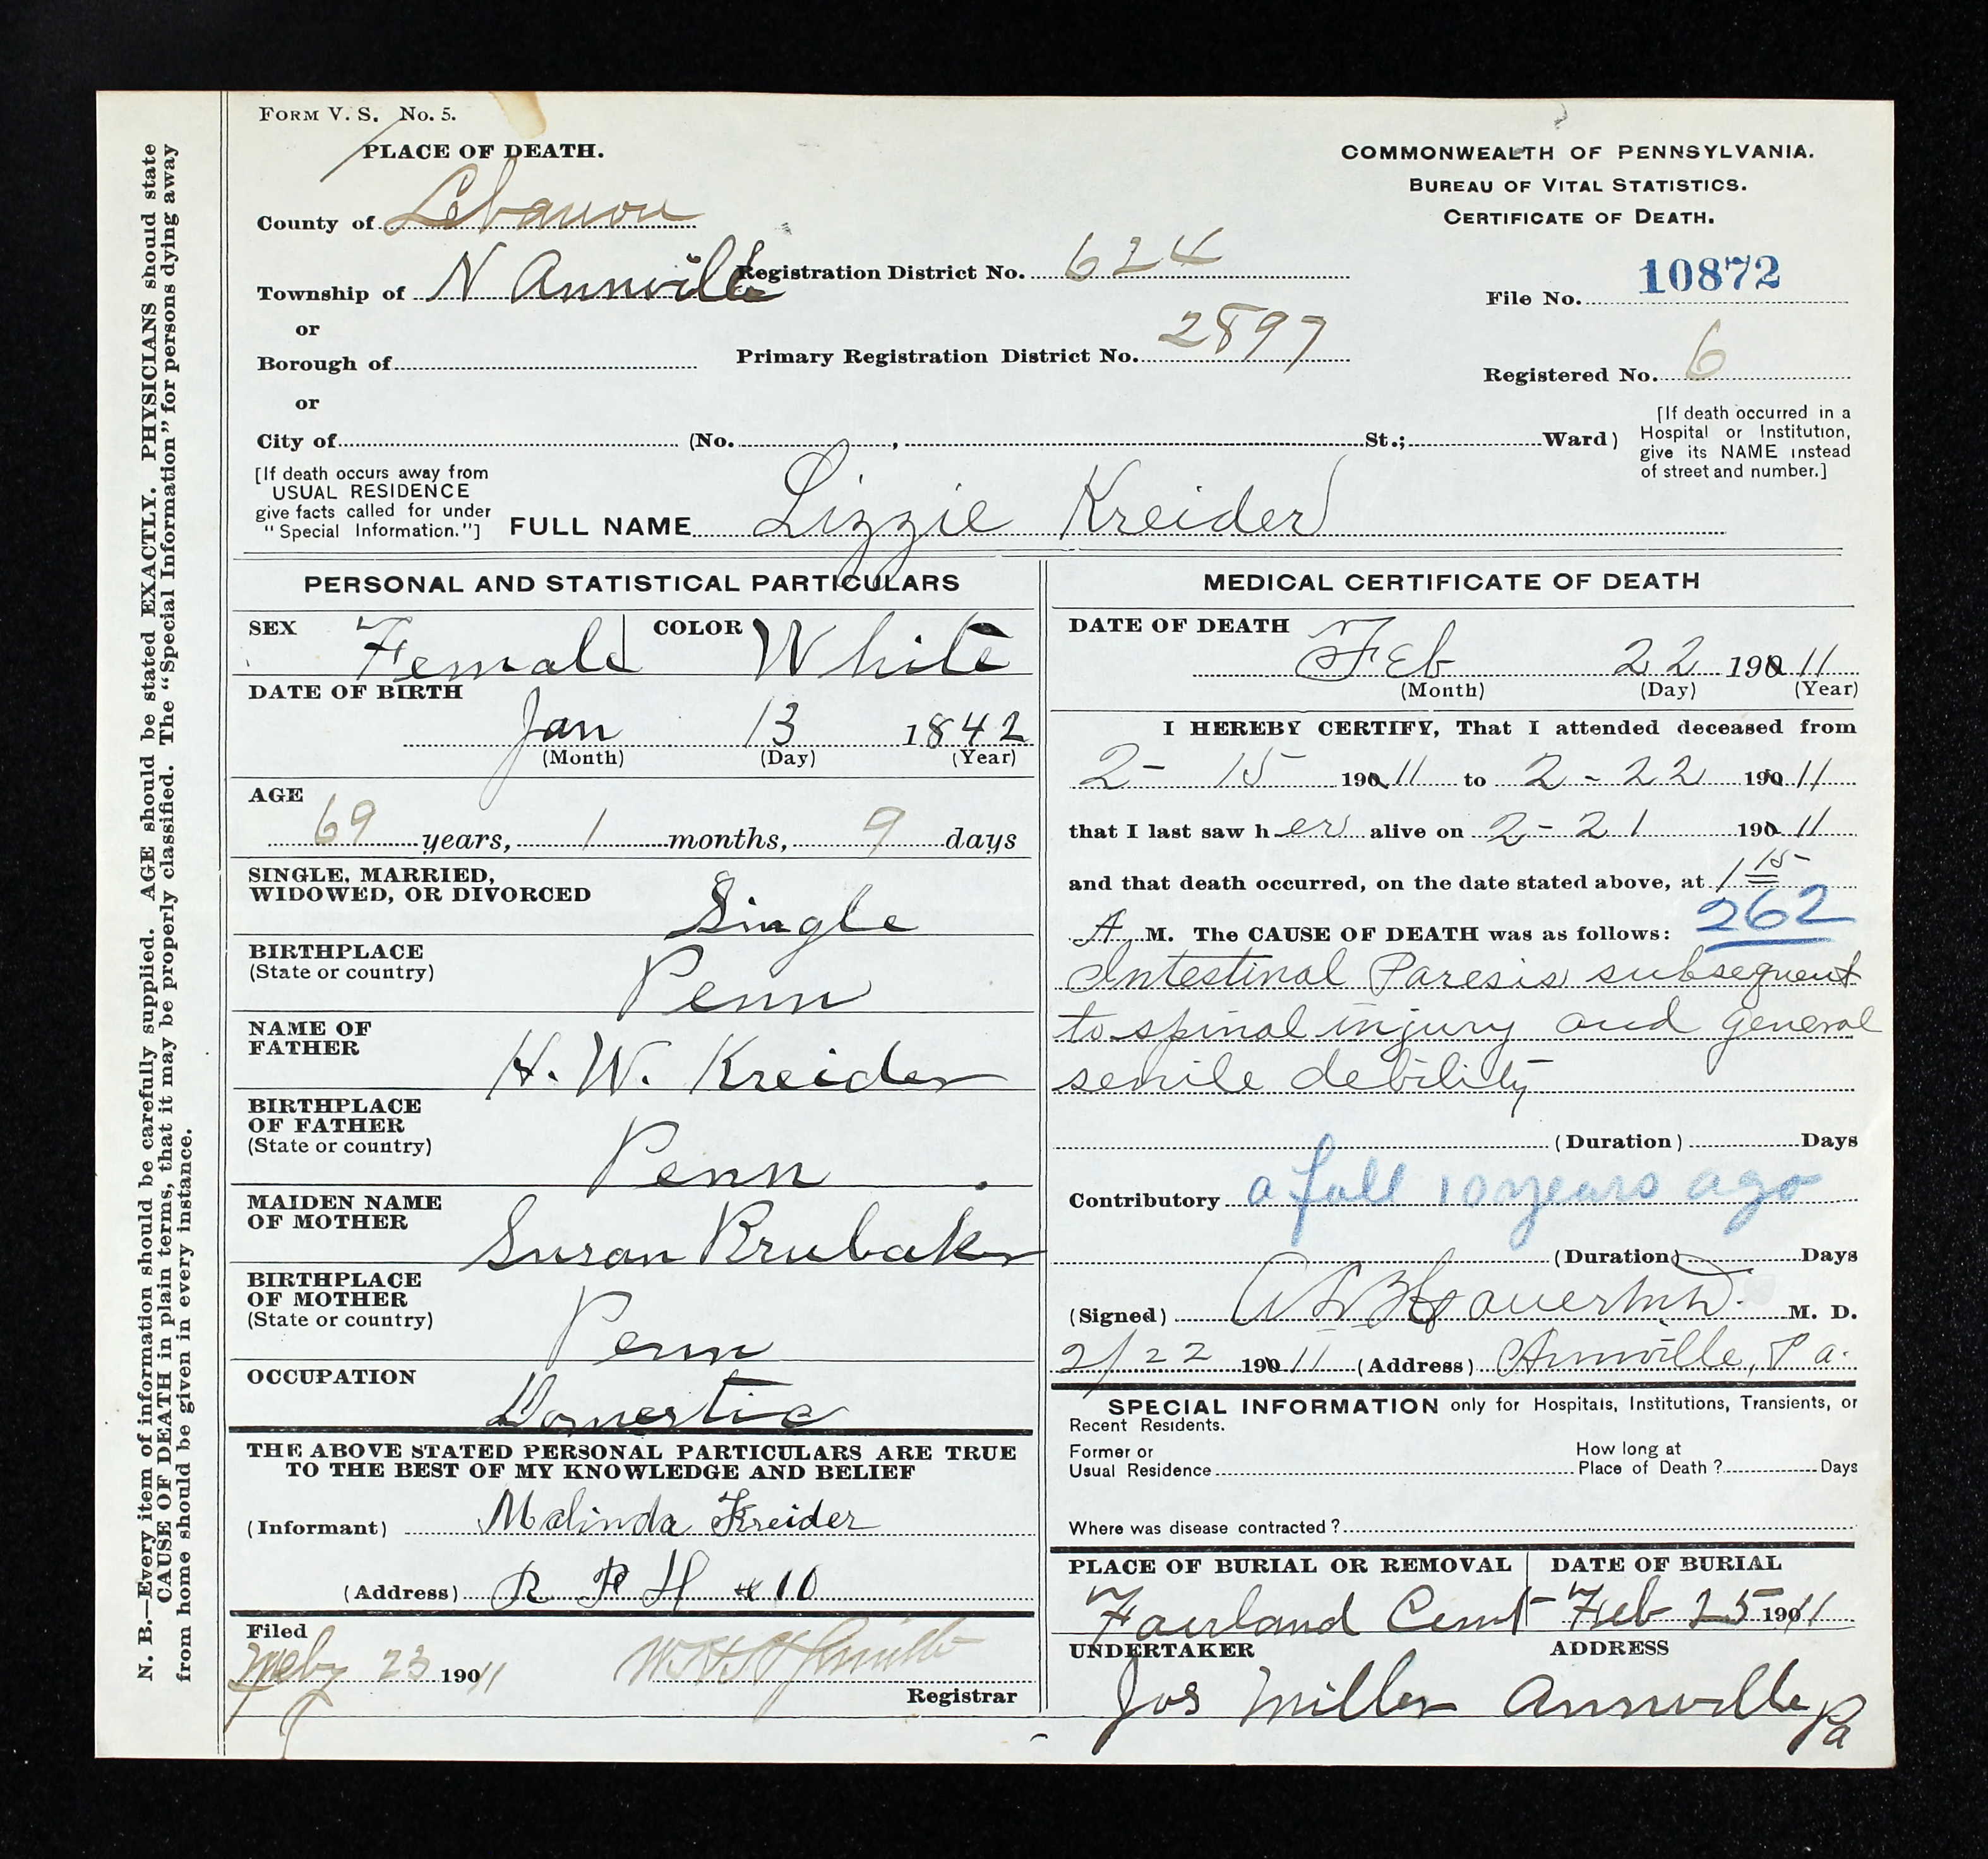 FORM V. S. No. 5.
PLACE OF DEATH.
County of Lebanon
Township of N Annville
or
Borough of
or
City of (No. , St.; Ward)
[If death occurs away from
USUAL RESIDENCE
give facts called for under
"Special Information."]
COMMONWEALTH OF PENNSYLVANIA.
BUREAU OF VITAL STATISTICS.
CERTIFICATE OF DEATH.
Registration District No. 624
File No. 10872
Primary Registration District No. 2897
Registered No. 6
[If death occurred in a
Hospital or Institution,
give its NAME instead
of street and number.]
FULL NAME Lizzie Kreider
PERSONAL AND STATISTICAL PARTICULARS
SEX Female COLOR White
DATE OF BIRTH
Jan 13 1842
(Month) (Day) (Year)
AGE
69 years, 1 months, 9 days
SINGLE, MARRIED,
WIDOWED, OR DIVORCED Single
BIRTHPLACE
(State or country) Penn
NAME OF
FATHER H. W. Kreider
BIRTHPLACE
OF FATHER
(State or country) Penn
MAIDEN NAME
OF MOTHER Susan Brubaker
BIRTHPLACE
OF MOTHER
(State or country) Penn
OCCUPATION
Domestic
THE ABOVE STATED PERSONAL PARTICULARS ARE TRUE
TO THE BEST OF MY KNOWLEDGE AND BELIEF
(Informant) Malinda Kreider
(Address) #10
Filed
23 190 11
Registrar
MEDICAL CERTIFICATE OF DEATH
DATE OF DEATH
Feb 22 190 11
(Month) (Day) (Year)
I HEREBY CERTIFY, That I attended deceased from
2- 15 190 11 to 2-22 190 11
that I last saw her alive on 2-21 190 11
and that death occurred, on the date stated above, at 1 15
A M. The CAUSE OF DEATH was as follows: 262
Intestinal Paresis subsequent
to spinal injury and general
senile debility
(Duration) Days
Contributory a fall 10 years ago
(Duration) Days
(Signed) M. D.
2/22 190 11 (Address) Annville, Pa.
SPECIAL INFORMATION only for Hospitals, Institutions, Transients, or
Recent Residents.
Former or
Usual Residence
How long at
Place of Death? Days
Where was disease contracted?
PLACE OF BURIAL OR REMOVAL
Fairland
DATE OF BURIAL
Feb 25 190 11
UNDERTAKER ADDRESS
Jos Miller Annville Pa
N. B.—Every item of information should be carefully supplied. AGE should be stated EXACTLY. PHYSICIANS should state
CAUSE OF DEATH in plain terms, that it may be properly classified. The "Special Information" for persons dying away
from home should be given in every instance.